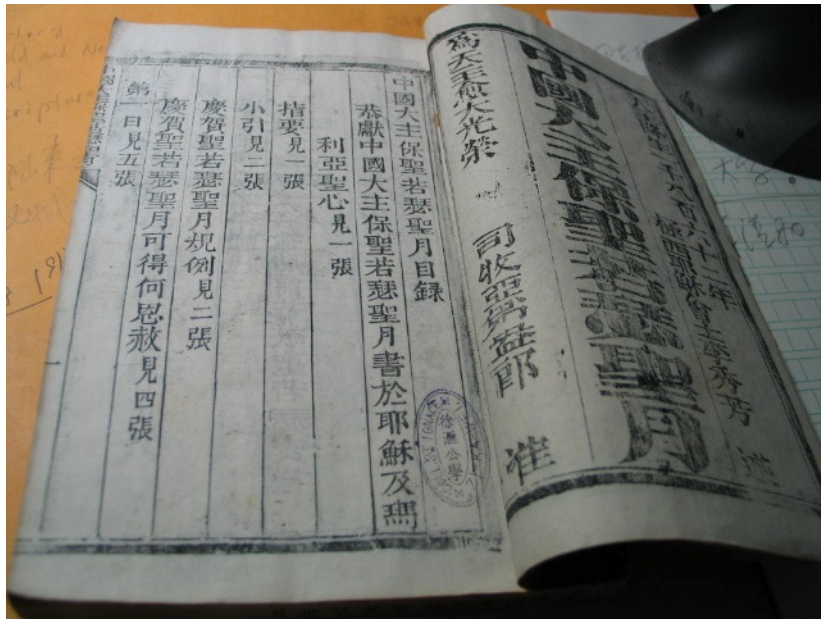 天降生一千八百六十二年
極西耶穌會士李秀芳 述
中國大主保聖若瑟聖月
司牧亞弟益郎 准
為天主愈大光榮
中國大主保聖若瑟聖月目錄
恭獻中國大主保聖若瑟聖月書於耶穌及瑪
利亞聖心見一張
指要見一張
小引見二張
慶賀聖若瑟聖月規例見二張
慶賀聖若瑟聖月可得何恩赦見四張
第一日見五張
中國大主保聖若瑟聖月
一
徐滙公學
ST IGNACE